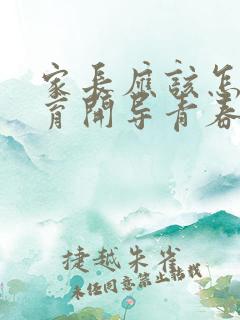 家长应该怎
育开导青春
捷越朱雀
未经同意禁止转载